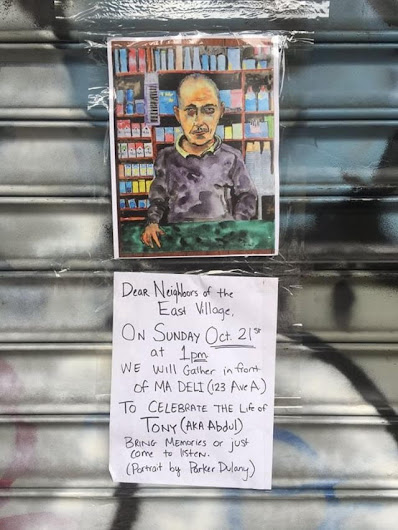 Dear Neighbors of the
East Village,
ON SUNDAY Oct. 21st
at 1pm
WE Will Gather in front
OF MA DELI (123 Ave A)
TO CELEBRATE THE Life of
TONY (AKA Abdul)
BRING Memories or just
come to listen.
(Portrait by Parker Dulany)